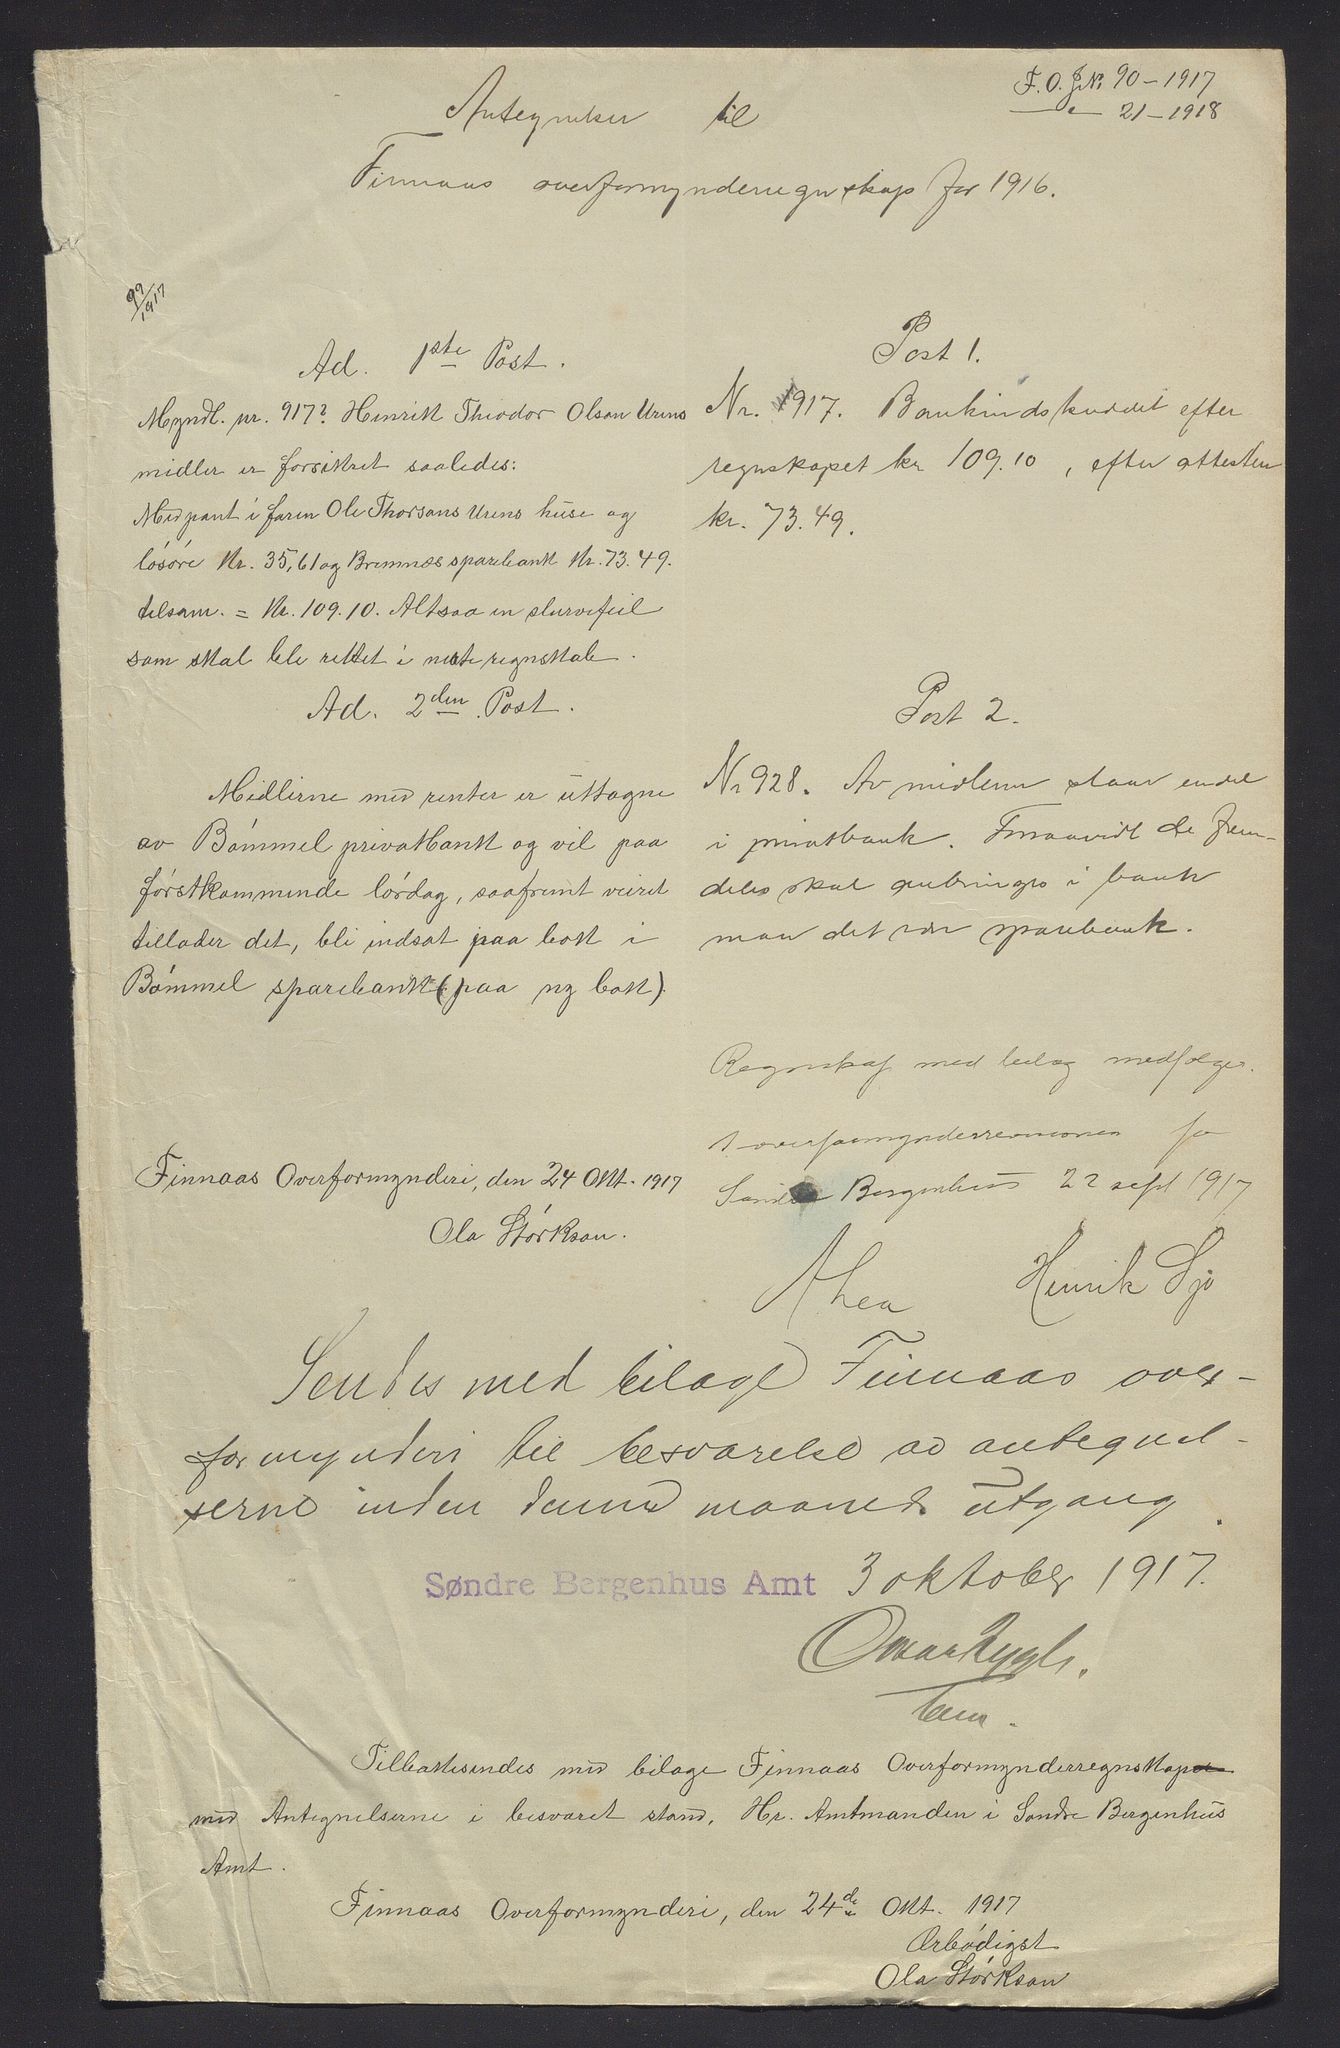 F. O. J.Nr 90 - 1917
— " — 21 - 1918
Antegnelser til
Finnaas overformynderregnskap for 1916.
99/1917
Ad. 1ste Post.
Myndl. nr. 917? Henrik Theodor Olson Urens
midler er forsikret saaledes:
Med pant i faren Ole Thorsons Urens huse og
løsøre Kr. 35,61 og Bremnes sparebank Kr. 73.49.
tilsam. = Kr. 109.10. Altsaa en slurvefeil
som skal bli rettet i neste regnskab.
Ad. 2den Post.
Midlerne med renter er uttagne
av Bømmel privatbank og vil paa
førstkommende lørdag, saafremt veiret
tillader det, bli indsat paa bok i
Bømmel sparebank (paa ny bok).
Finnaas Overformynderi, den 24 Okt. 1917
Ola Størkson.
Post 1.
Nr. 917. Bankindskuddet efter
regnskapet kr 109.10, efter attesten
kr. 73.49.
Post 2.
Nr 928. Av midlerne staar endel
i privatbank. Forsaavidt de frem-
deles skal anbringes i bank
maa det være sparebank.
Regnskap med bilag medfølger.
overformynderrevisionen for
Søndre Bergenhus 22 sept 1917
A Lea Henrik Sjo
Sendes med bilage Finnaas over-
formynderi til besvarelse av antegnel-
serne inden denne maaneds utgang.
Søndre Bergenhus Amt 3 oktober 1917.
Tilbakesendes med bilage Finnaas Overformynderregnskap
med Antegnelserne i besvaret stand, Hr. Amtmanden i Søndre Bergenhus
Amt.
Finnaas Overformynderi, den 24de Okt. 1917
Ærbødigst
Ola Størkson